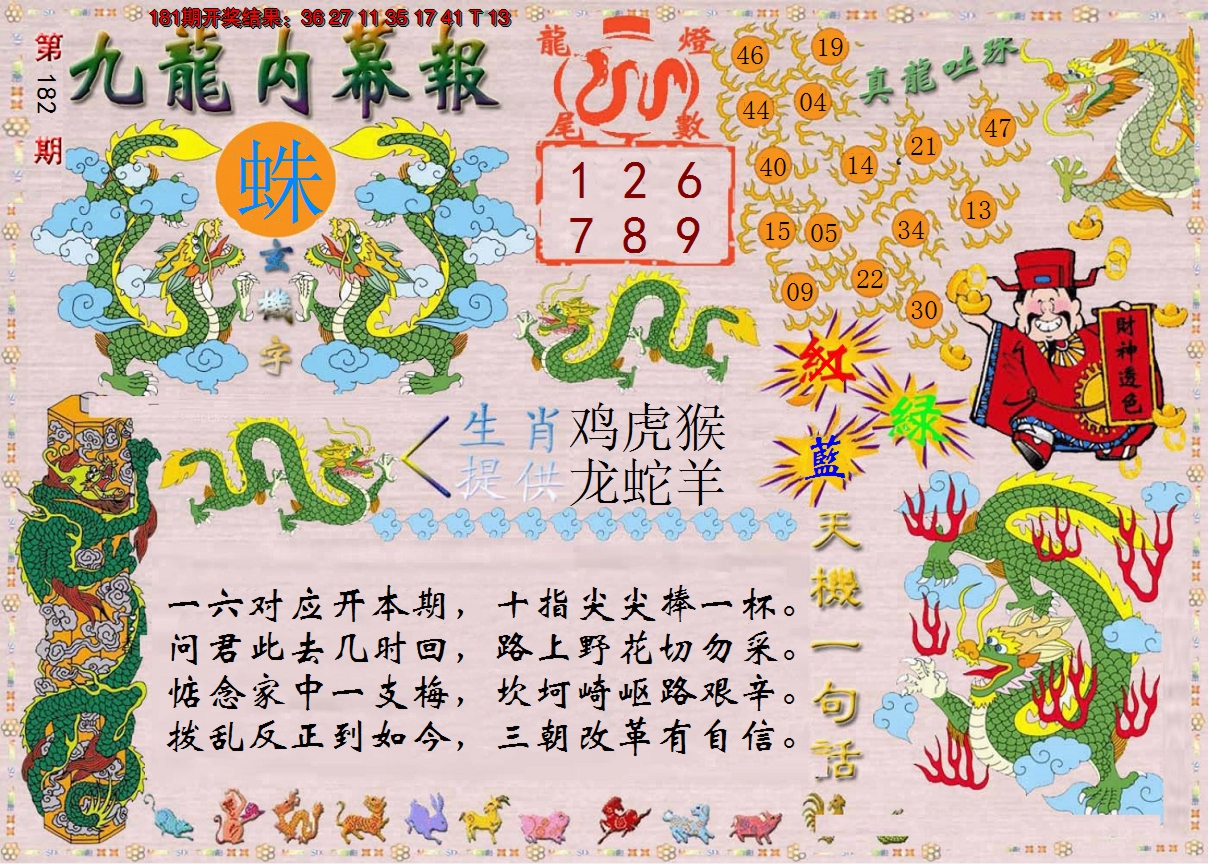 181期开奖结果：36 27 11 35 17 41 T 13
第182期
九龍内幕報
蛛
玄機字
龍燈
尾數
1 2 6
7 8 9
真龍吐珠
46
19
44
04
47
21
40
14
13
15
05
34
22
09
30
紅
綠
藍
財神透色
生肖 鸡虎猴
提供 龙蛇羊
天機一句話
一六对应开本期，十指尖尖捧一杯。
问君此去几时回，路上野花切勿采。
惦念家中一支梅，坎坷崎岖路艰辛。
拨乱反正到如今，三朝改革有自信。